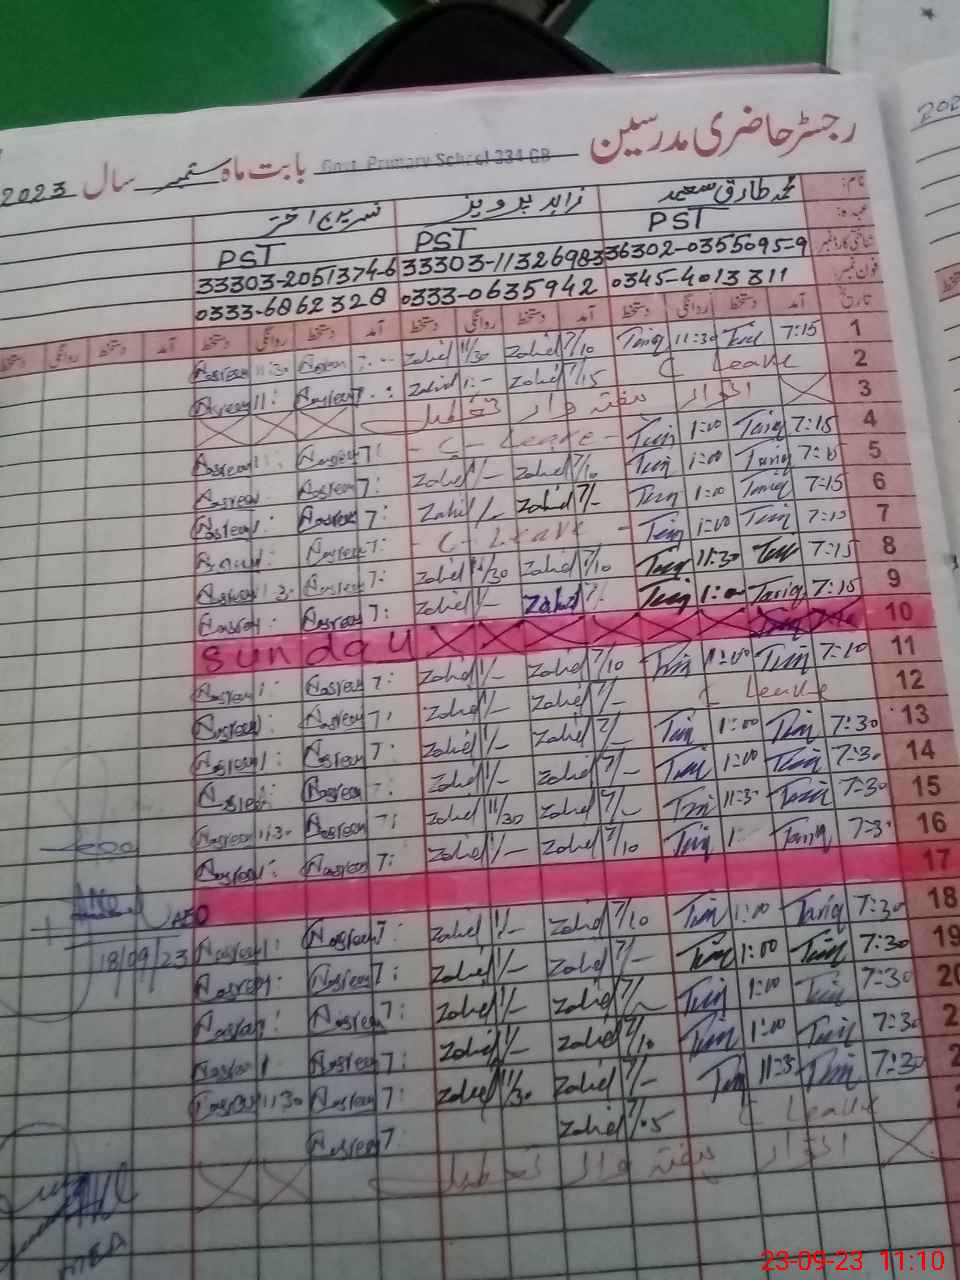 رجسٹر حاضری مدرسین
بابت ماہ ستمبر سال 2023
Govt. Primary School 334 GB
نام: محمد طارق سعید زاہد پرویز نسرین اختر
عہدہ: PST PST PST
شناختی کارڈ نمبر 36302-0355095-9 33303-1132698-3 33303-2051374-6
فون نمبر: 0345-4013311 0333-0635942 0333-6862328
تاریخ آمد دستخط روانگی دستخط آمد دستخط روانگی دستخط آمد دستخط روانگی دستخط آمد دستخط روانگی دستخط
1 7:15 Tariq 11:30 Tariq 7/10 Zahid 11/30 Zahid 7: Nasreen 11:30 Nasreen
2 C Leave 7/15 Zahid 1:- Zahid 7: Nasreen 11: Nasreen
3 اتوار ہفتہ وار تعطیل
4 7:15 Tariq 1:00 Tariq - C - Leave - 7: Nasreen Nasreen
5 Tariq 1:00 Tariq 7/10 Zahid 1/- Zahid 7: Nasreen Nasreen
6 7:15 Tariq 1:00 Tariq 7/- Zahid 1/- Zahid 7: Nasreen 1: Nasreen
7 Tariq 1:00 Tariq - C - Leave - 7: Nasreen
8 7:15 Tariq 11:30 Tariq 7/10 Zahid 11/30 Zahid 7: Nasreen Nasreen
9 7:15 Tariq 1:00 Tariq 7/- Zahid 1/- Zahid 7: Nasreen Nasreen
10 Sunday
11 7:10 Tariq 1:00 Tariq 7/10 Zahid 1/- Zahid 7: Nasreen 1: Nasreen
12 C Leave 7/- Zahid 1/- Zahid 7: Nasreen Nasreen
13 7:30 Tariq 1:00 Tariq 7/- Zahid 1/- Zahid 7: Nasreen 1: Nasreen
14 7:30 Tariq 1:00 Tariq 7/- Zahid 1/- Zahid 7: Nasreen Nasreen
15 7:30 Tariq 11:30 Tariq 7/- Zahid 11/30 Zahid 7: Nasreen 11:30 Nasreen
16 7:3 Tariq 1: Tariq 7/10 Zahid 1/- Zahid 7: Nasreen 1: Nasreen
17
18 7:30 Tariq 1:00 Tariq 7/10 Zahid 1/- Zahid 7: Nasreen 1: Nasreen
19 7:30 Tariq 1:00 Tariq 7/- Zahid 1/- Zahid 7: Nasreen Nasreen
20 7:30 Tariq 1:00 Tariq 7/- Zahid 1/- Zahid 7: Nasreen Nasreen
2 7:30 Tariq 1:00 Tariq 7/10 Zahid 1/- Zahid 7: Nasreen 1 Nasreen
2 7:30 Tariq 11:3 Tariq 7/- Zahid 11/30 Zahid 7: Nasreen 11:30 Nasreen
C Leave 7/05 Zahid 7: Nasreen
اتوار ہفتہ وار تعطیل
AEO
18/09/23
23-09-23 11:10